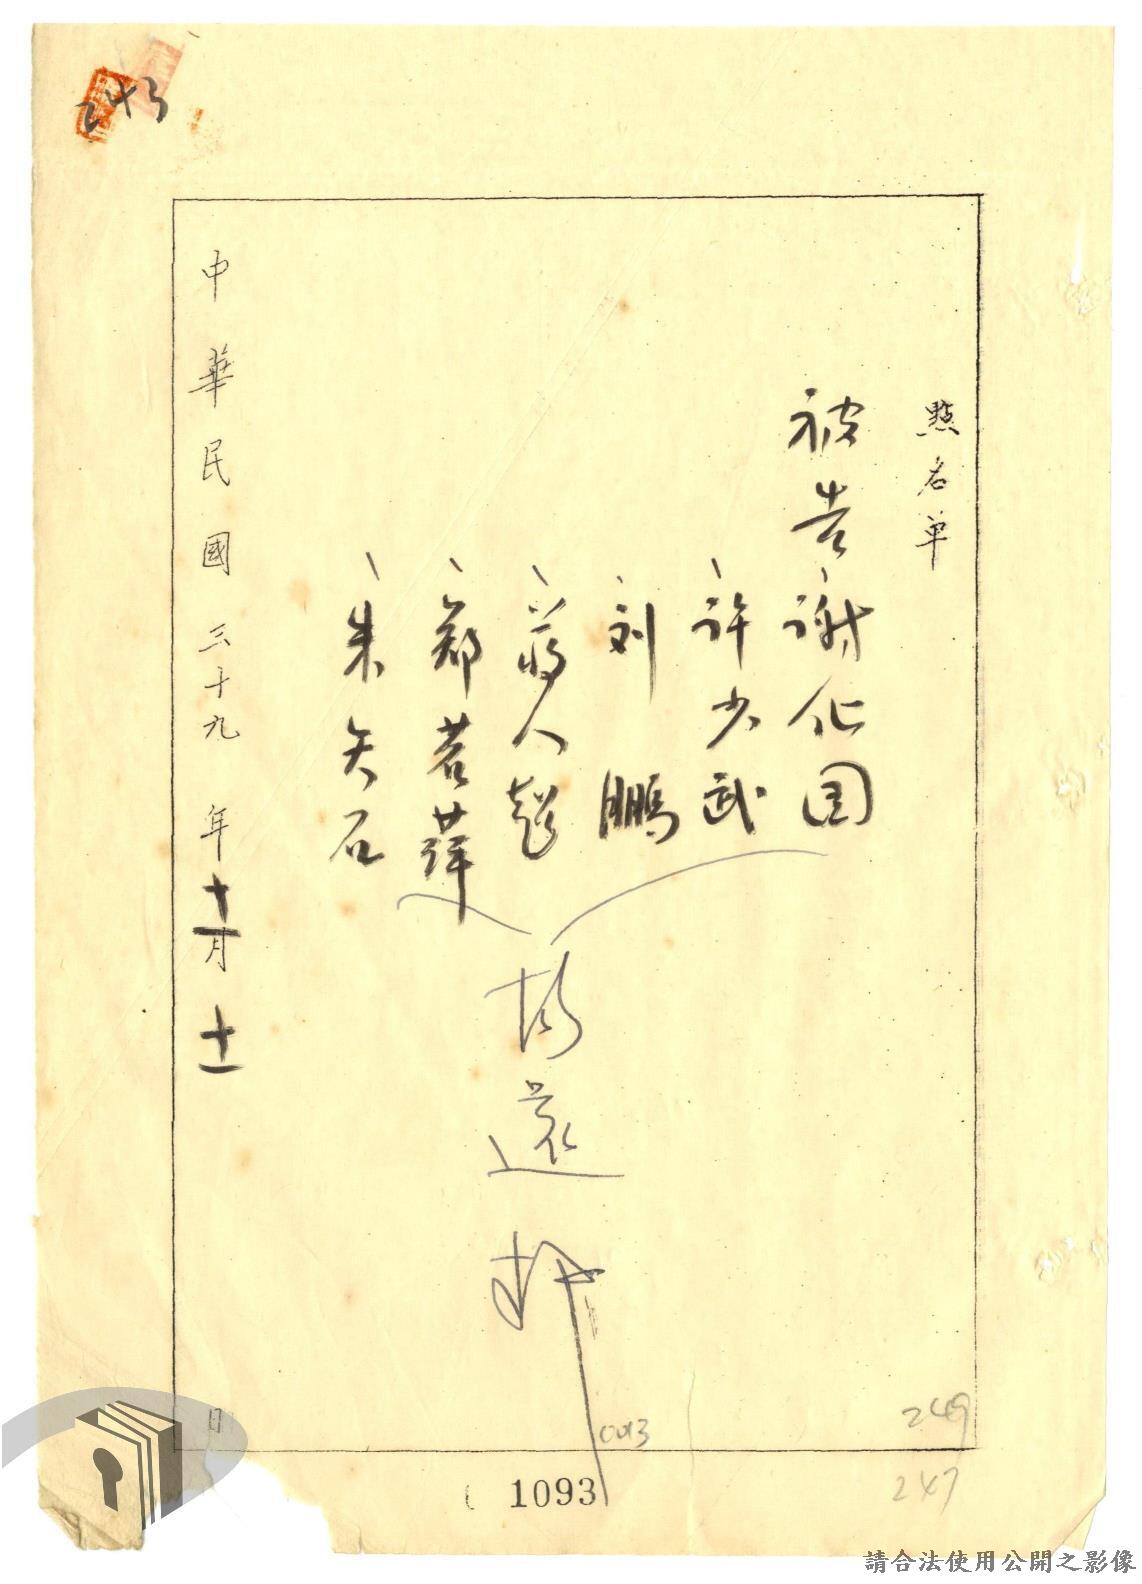 243
點名單
被告謝化国
許少武
刘鵬
蔣人超
鄭若萍
朱矢石
均還押
中華民國三十九年十一月十一日
0013
249
247
1093
請合法使用公開之影像